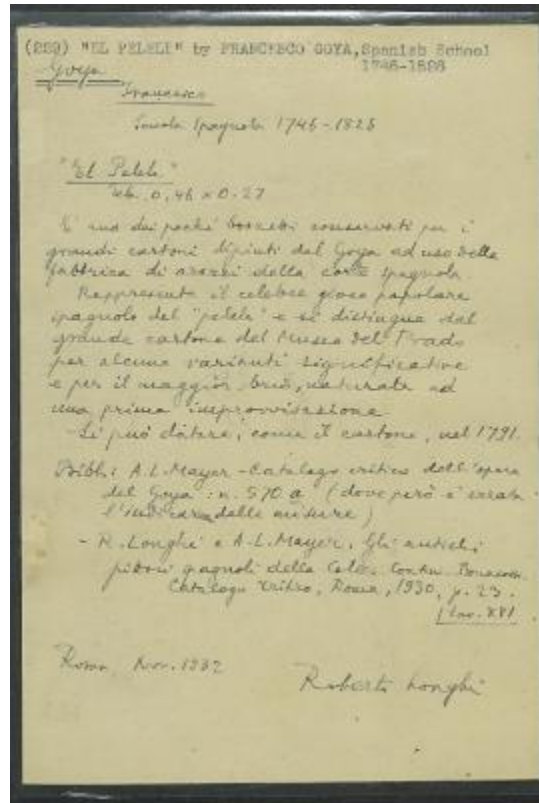 (299) "EL PELELI" by FRANCESCO GOYA, Spanish School
1746-1828
Goya
Francesco
Scuola Spagnola 1746-1828
"El Pelele"
0,46 x 0.27
È uno dei pochi bozzetti conservati per i
grandi cartoni dipinti dal Goya ad uso della
fabbrica di arazzi della corte spagnola.
Rappresenta il celebre gioco popolare
spagnolo del "pelele" e si distingue dal
grande cartone del Museo del Prado
per alcune varianti significative
e per il maggior brio, naturale ad
una prima improvvisazione.
Si può datare, come il cartone, nel 1791.
Bibl: A.L. Mayer - Catalogo critico dell'opera
del Goya: n. 570 a (dove però è errata
l'indicaz. delle misure)
- R. Longhi e A.L. Mayer, Gli antichi
pittori spagnoli della Colez. Contini Bonacossi.
Catalogo critico, Roma, 1930, p. 23.
Tav. XVI
Roma, Nov. 1932
Roberto Longhi